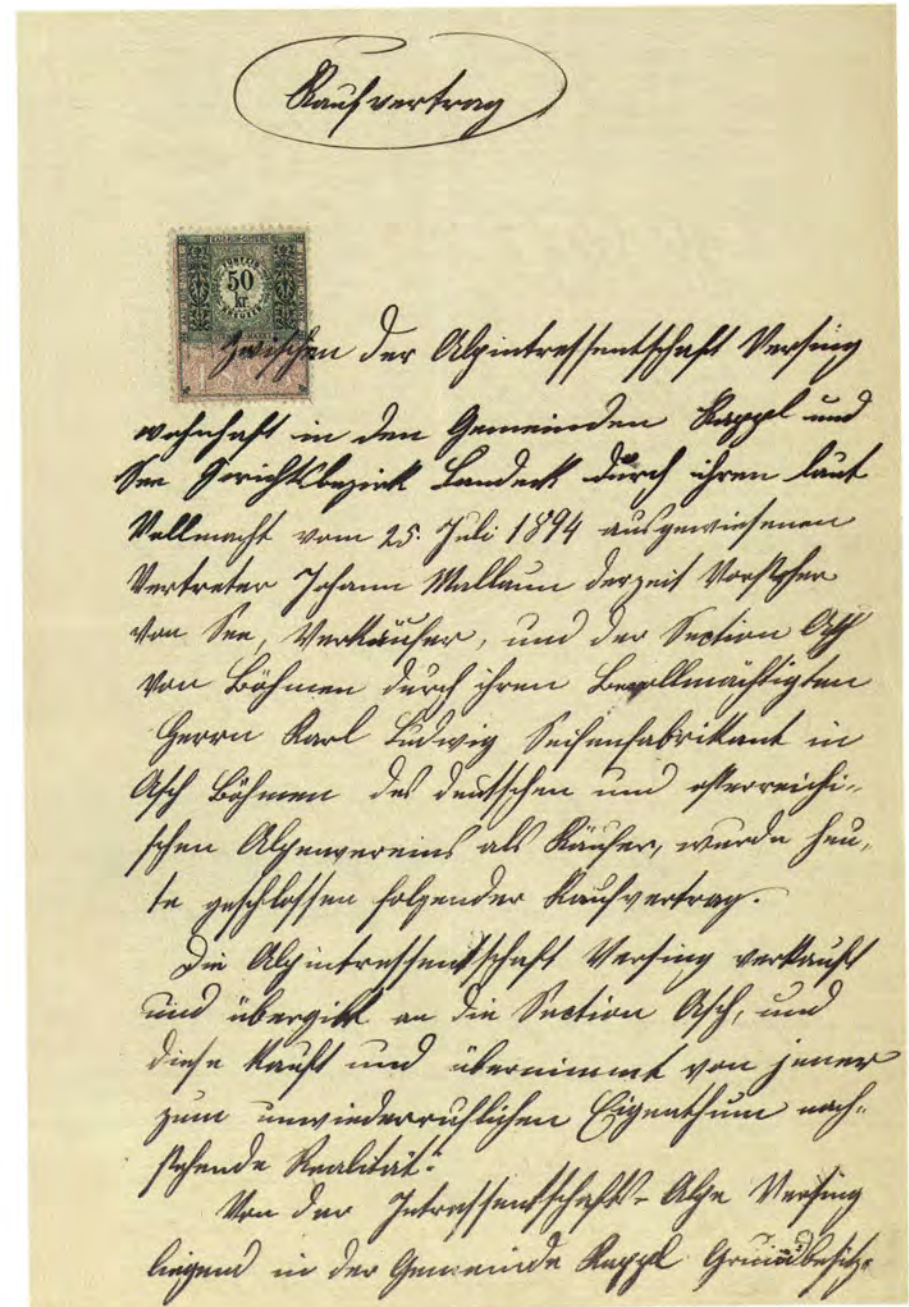 Kaufvertrag
50
kr.
zwischen der Alpintressentschaft Versing
wohnhaft in den Gemeinden Kappl und
See Gerichtsbezirk Landeck durch ihren laut
Vollmacht vom 25. Juli 1894 ausgewiesenen
Vertreter Johann Mallaun derzeit Vorsteher
von See, Verkäufer, und der Section Asch
von Böhmen durch ihren Bevollmächtigten
Herrn Karl Ludwig Seifenfabrikant in
Asch Böhmen des deutschen und österreichi-
schen Alpenvereins als Käufer, wurde heu-
te geschlossen folgender Kaufvertrag.
Die Alpintressentschaft Versing verkauft
und übergibt an die Section Asch, und
diese kauft und übernimmt von jener
zum unwiederruflichen Eigenthum nach-
stehende Realität:
Von der Intressentschafts-Alpe Versing
liegend in der Gemeinde Kappl Grundbesitz-